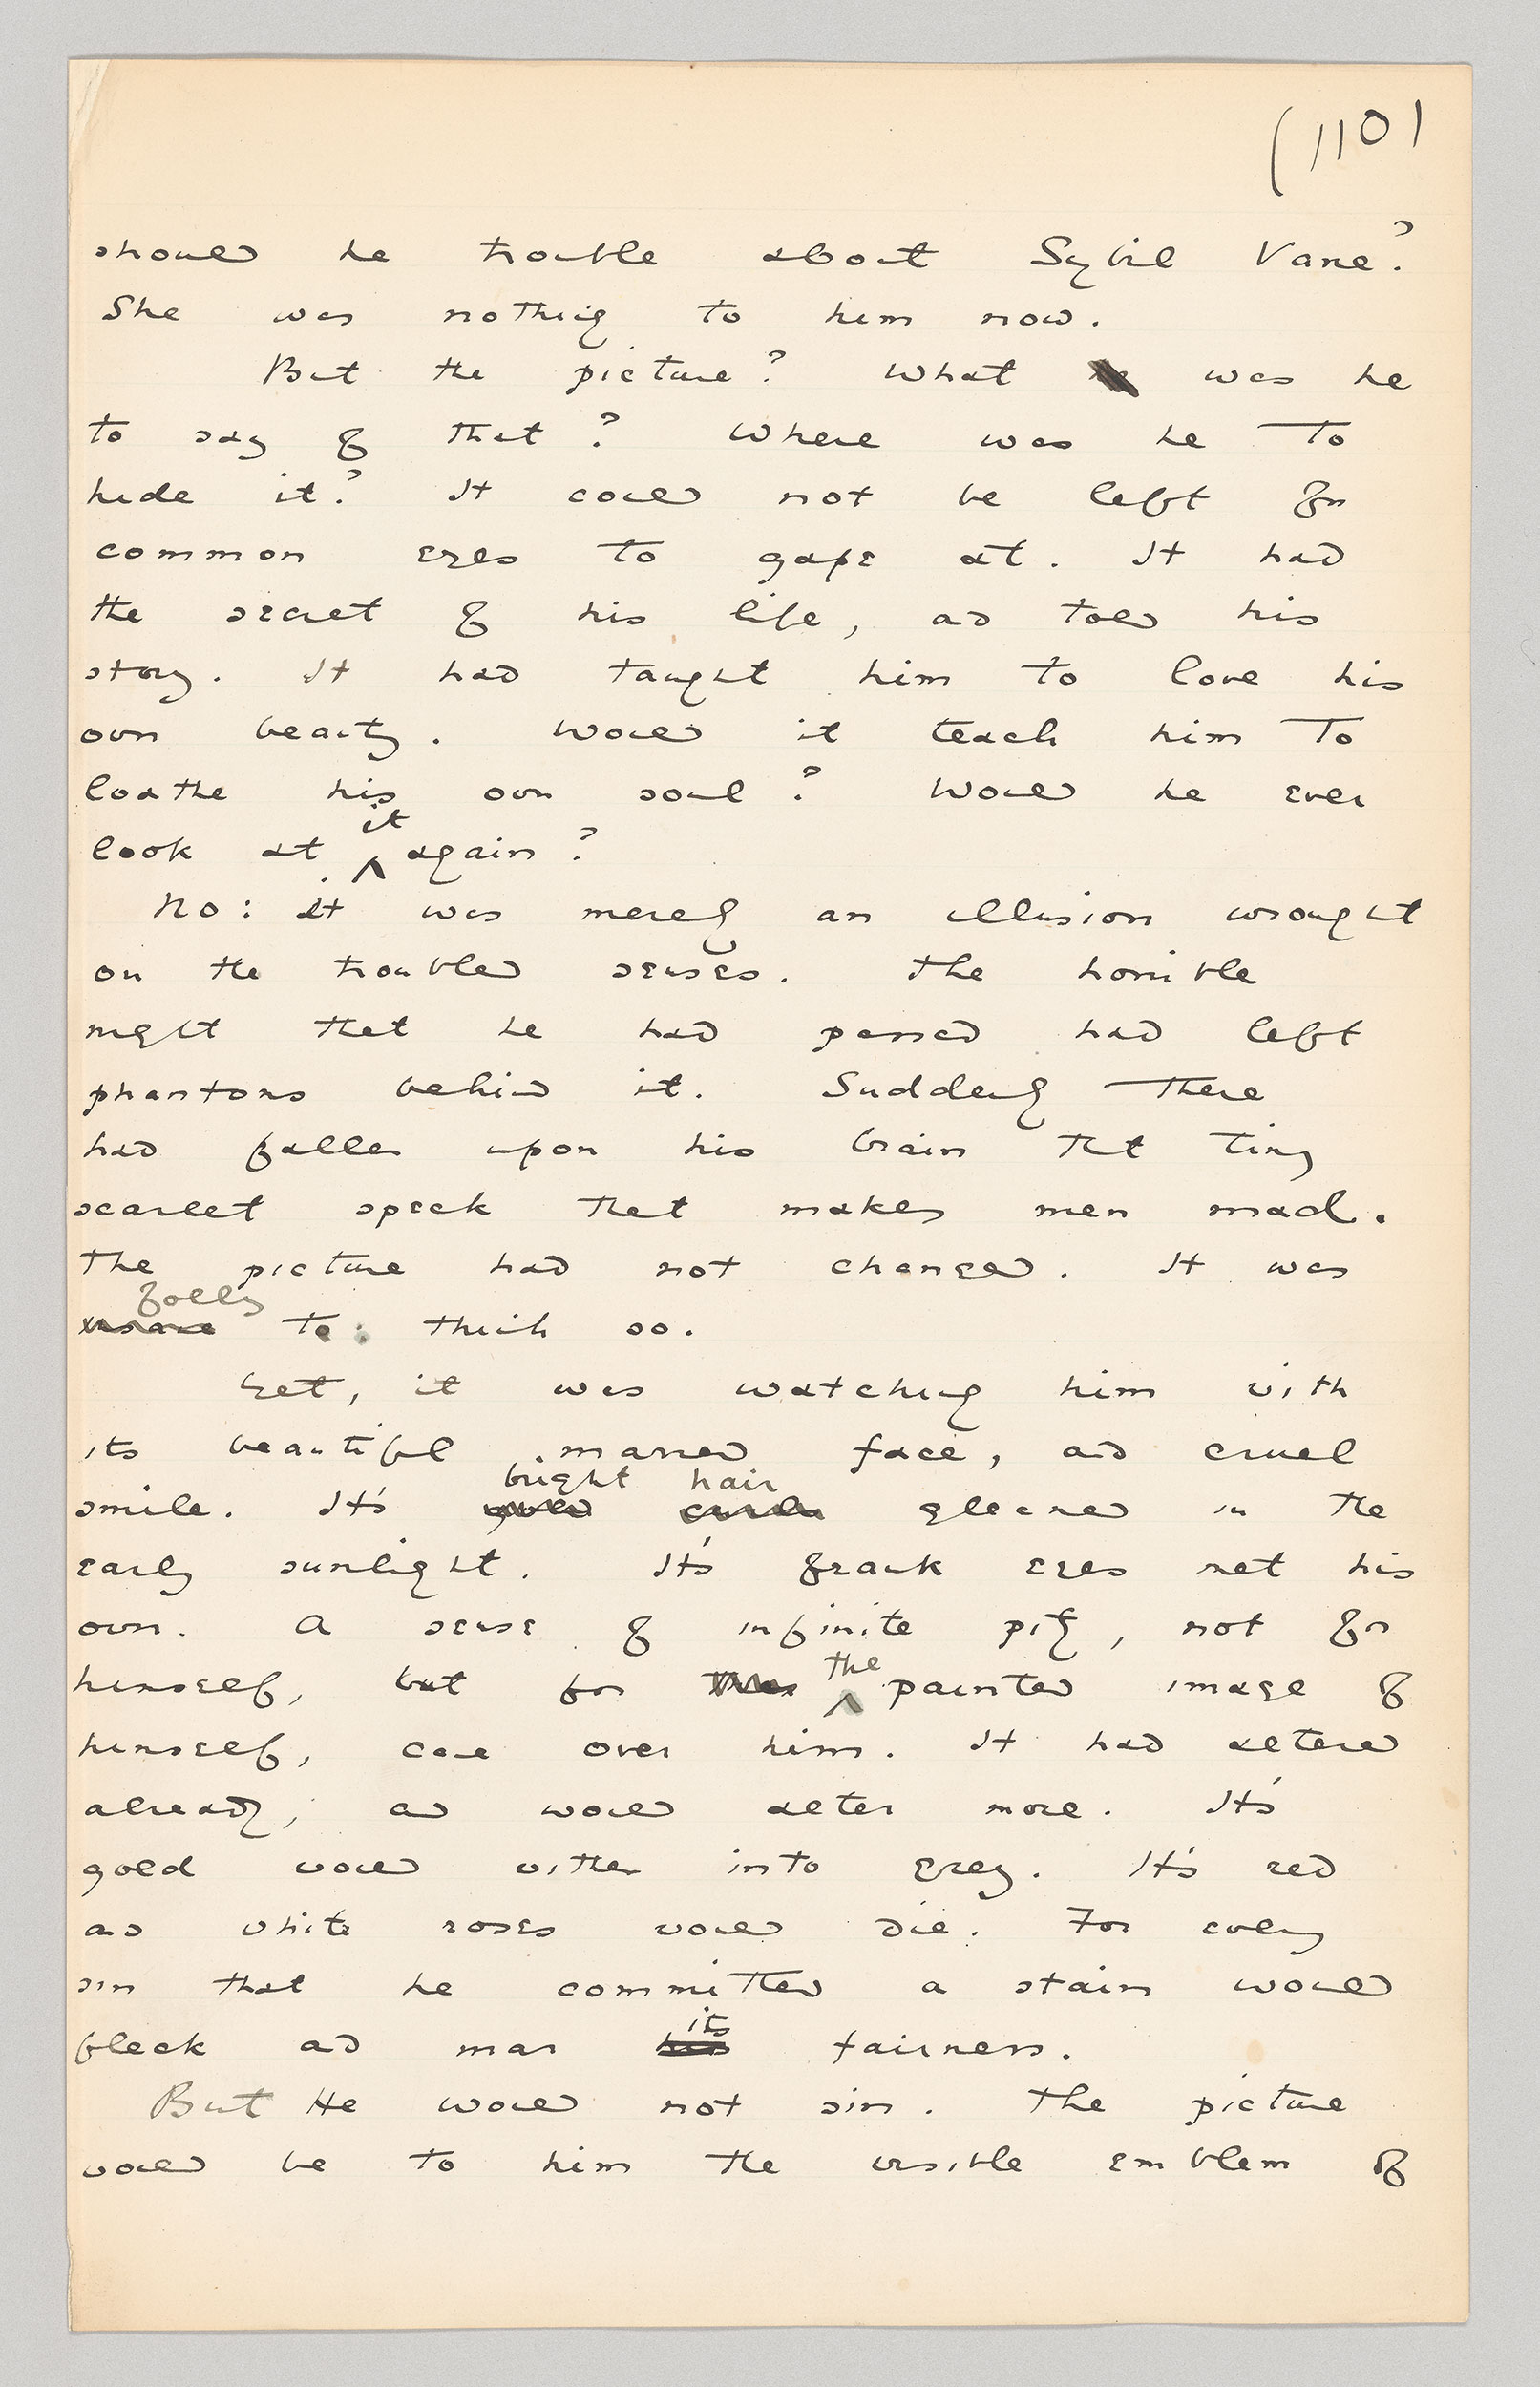 (110)
should he trouble about Sybil Vane?
She was nothing to him now.
But the picture? What was he
to say of that? Where was he to
hide it? It could not be left for
common eyes to gape at. It had
the secret of his life, and told his
story. It had taught him to love his
own beauty. Would it teach him to
loathe his own soul? Would he ever
it
look at ^ again?
No: it was merely an illusion wrought
on the troubled senses. The horrible
night that he had passed had left
phantoms behind it. Suddenly there
had fallen upon his brain that tiny
scarlet speck that makes men mad.
The picture had not changed. It was
folly
to think so.
Yet, it was watching him with
its beautiful marred face, and cruel
bright hair
smile. It's gold curls gleamed in the
early sunlight. It's frank eyes met his
own. A sense of infinite pity, not for
the
himself, but for ^ painted image of
himself, came over him. It had altered
already, and would alter more. It's
gold would wither into grey. It's red
and white roses would die. For every
sin that he committed a stain would
its
fleck and mar his fairness.
But He would not sin. The picture
would be to him the visible emblem of